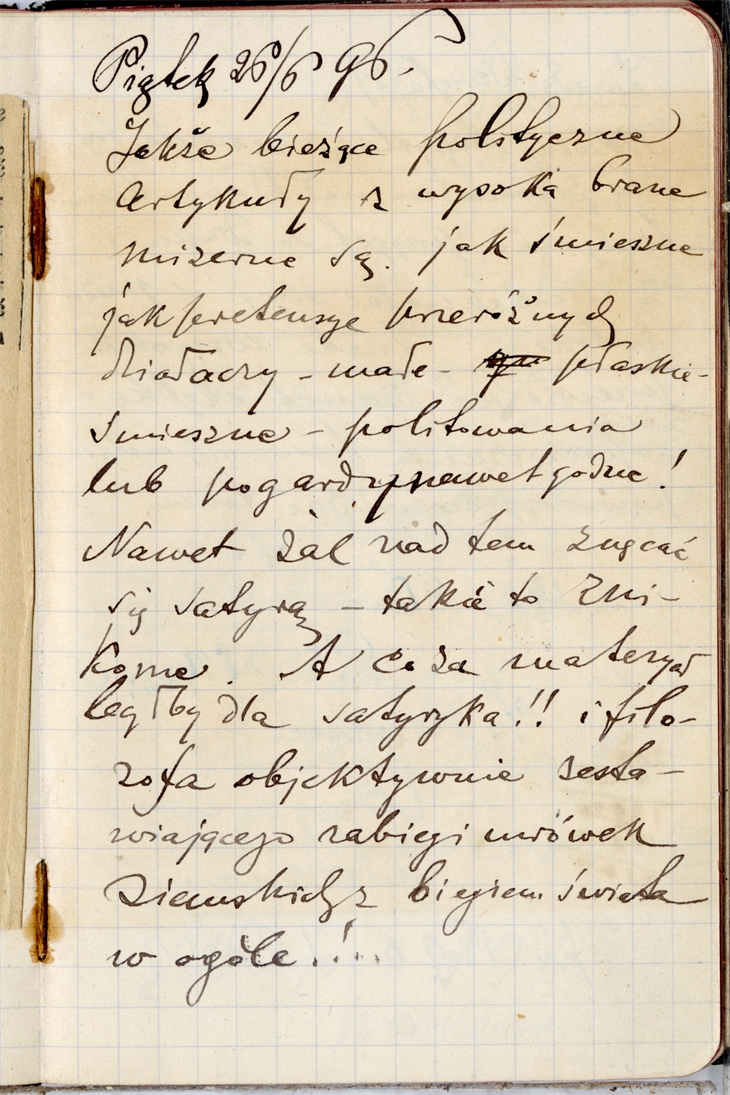 Piątek 26/6 96.
Jakże bieżące polityczne
artykuły z wysoka brane
mizerne są. jak śmieszne
jak pretensye przeróżnych
działaczy – małe – płaskie –
śmieszne – politowania
lub pogardy nawet godne!
Nawet żal nad tem znęcać
się satyrą – takie to zni-
kome. A coza materyał
byłby dla satyryka!! i filo-
zofa objektywnie zesta-
wiającego zabiegi mrówek
ziemskich z biegiem świata
w ogóle.!..